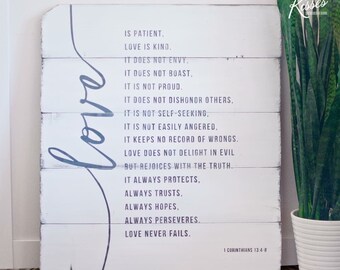 Kisses
love
IS PATIENT,
LOVE IS KIND.
IT DOES NOT ENVY,
IT DOES NOT BOAST,
IT IS NOT PROUD.
IT DOES NOT DISHONOR OTHERS,
IT IS NOT SELF-SEEKING,
IT IS NOT EASILY ANGERED,
IT KEEPS NO RECORD OF WRONGS.
LOVE DOES NOT DELIGHT IN EVIL
BUT REJOICES WITH THE TRUTH.
IT ALWAYS PROTECTS,
ALWAYS TRUSTS,
ALWAYS HOPES,
ALWAYS PERSEVERES.
LOVE NEVER FAILS.
1 CORINTHIANS 13:4-8